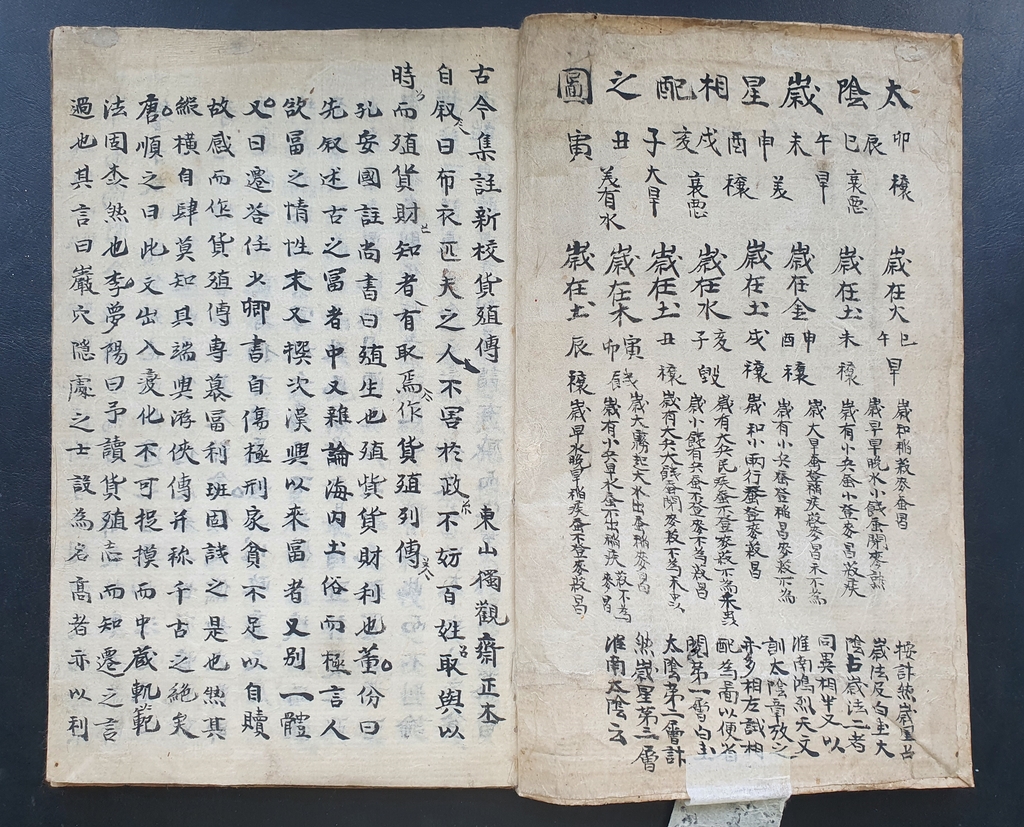 太陰歲星相配之圖
卯辰巳午未申酉戌亥子丑寅
穰
衰惡
旱
美
穰
衰惡
大旱
美有水
歲在火巳午旱
歲在土未穰
歲在金申酉穰
歲在土戌穰
歲在水亥子毀
歲在土丑穰
歲在木寅卯
歲在土辰穰
歲和稻菽麥蚕昌
歲早旱晚水小饑蚕閉麥熟
歲有小兵蚕小登麥昌菽疾
歲大旱蚕登稻疾菽麥昌禾不為
歲有小兵蚕登稻昌麥菽不為
歲和小雨行蚕登麥菽昌
歲有大兵民疾蚕不登麥菽不為禾虫
小饑有兵蚕不登麥不為菽昌
歲有大兵大饑蚕開麥菽不為禾虫
歲大霧起大水出蚕稻麥昌
歲有小兵早水蚕不出稻疾菽不為麥昌
歲早水晚旱稻疾蚕不登麥菽昌
按計然歲星占
歲法及白圭太
陰占歲法二者
同異相半又以
淮南鴻烈天文
訓太陰章攷之
亦多相左試相
配為啚以便省
閱第一層白圭
太陰第二層計
然歲星第三層
淮南太陰云
古今集註新校貨殖傳 東山獨觀齋正本
自叙曰布衣匹夫之人不害於政不妨百姓取與以
時而殖貨財知者有取焉作貨殖列傳
孔安國註尚書曰殖生也殖貲貨財利也董份曰
先叙述古之富者中又雜論海內土俗而極言人
欲富之情性末又撰次漢興以來富者又別一體
又曰遷答任少卿書自傷極刑家貧不足以自贖
故感而作貨殖傳專慕富利班固譏之是也然其
縱橫自肆莫知其端與游俠傳并称千古之絕矣
唐順之曰此文出入变化不可捉摸而中藏軌範
法固森然也李夢陽曰予讀貨殖志而知遷之言
過也其言曰巖穴隱處之士設為名高者亦以利